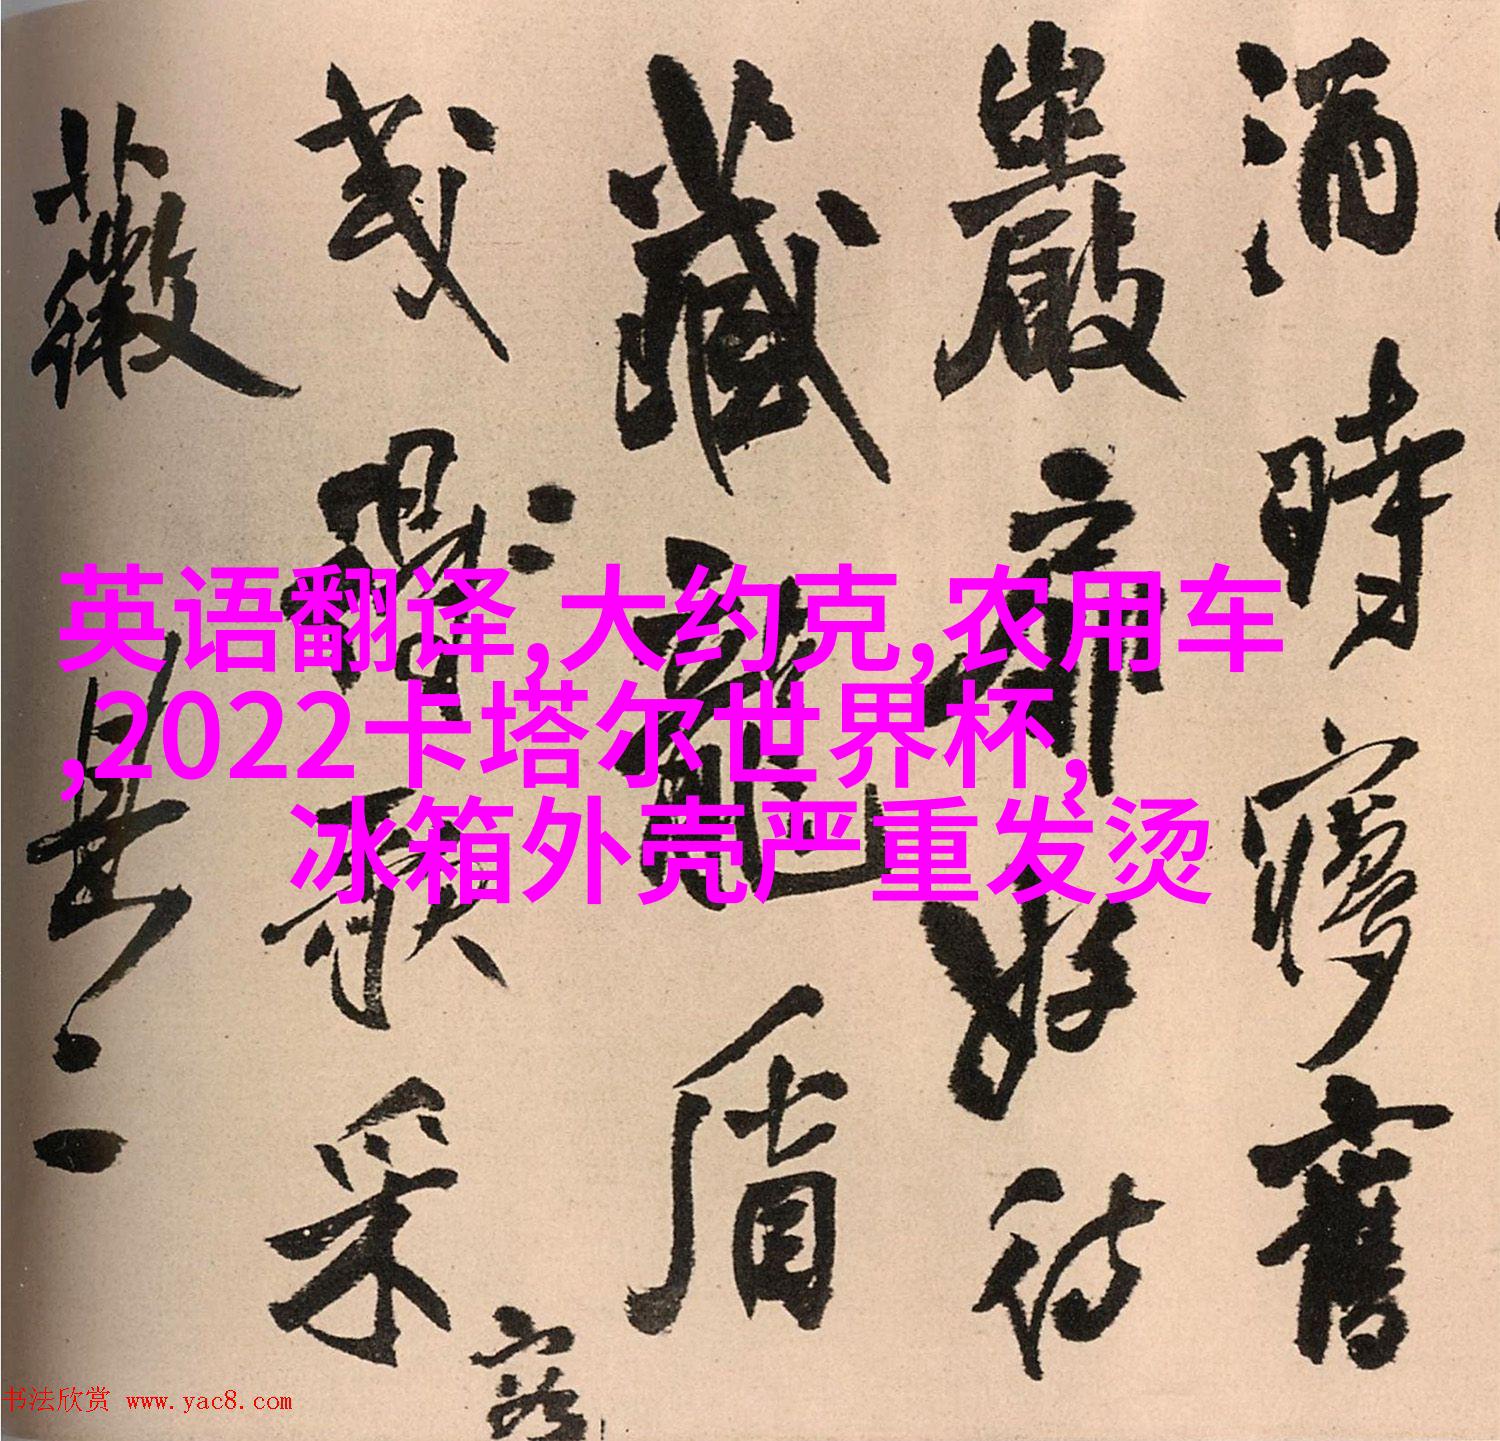 英语翻译,大约克,农用车
,2022卡塔尔世界杯,
冰箱外壳严重发烫
酒時 舊
巖 好待
藏龍盾
歌采
薇是
书法欣赏 www.yac8.com